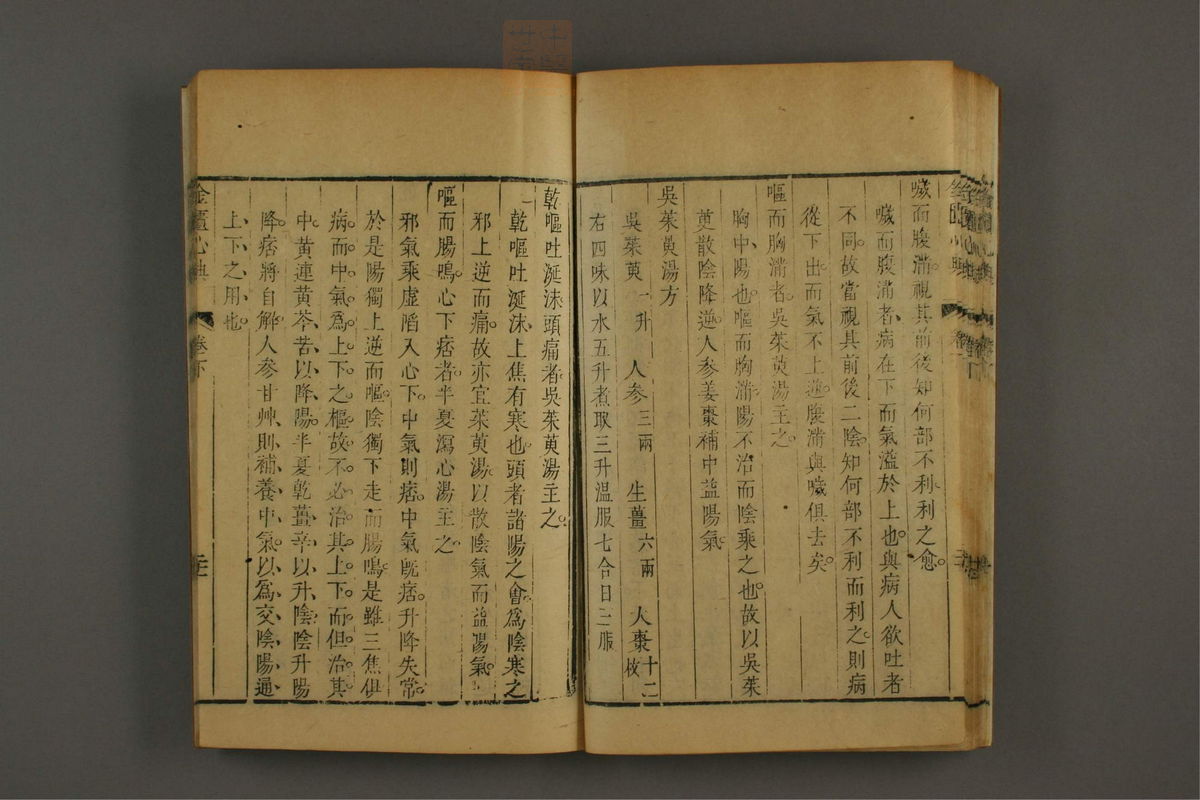 噦而腹滿視其前後知何部不利利之愈
噦而腹滿者病在下而氣溢於上也與病人欲吐者
不同故當視其前後二陰知何部不利而利之則病
從下出而氣不上逆腹滿與噦俱去矣
嘔而胸滿者吳茱萸湯主之
胸中陽也嘔而胸滿陽不治而陰乘之也故以吳茱
萸散陰降逆人參姜棗補中益陽氣
吳茱萸湯方
吳茱萸一升 人參三兩 生薑六兩 大棗十二枚
右四味以水五升煮取三升温服七合日三服
乾嘔吐涎沫頭痛者吳茱萸湯主之
乾嘔吐涎沫上焦有寒也頭者諸陽之會為陰寒之
邪上逆而痛故亦宜茱萸湯以散陰氣而益陽氣
嘔而腸鳴心下痞者半夏瀉心湯主之
邪氣乘虛陷入心下中氣則痞中氣既痞升降失常
於是陽獨上逆而嘔陰獨下走而腸鳴是雖三焦俱
病而中氣為上下之樞故不必治其上下而但治其
中黃連黃芩苦以降陽半夏乾薑辛以升陰陰升陽
降痞將自解人參甘艸則補養中氣以為交陰陽通
上下之用也
金匱心典 卷下